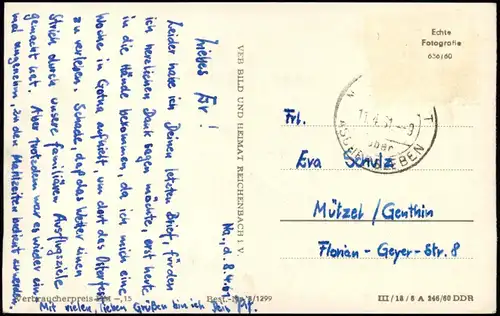 Wo, d. 8.4.61
Liebes Ev!
Leider habe ich Deinen letzten Brief, für den
ich herzlichen Dank sagen möchte, erst heute
in die Hände bekommen, da ich mich eine
Woche in Gotha aufhielt, um dort das Osterfest
zu verleben. Schade, daß das Wetter einen
Strich durch unsere familiären Ausflugsziele
gemacht hat. Aber trotzdem war es wieder ein-
mal angenehm, zu den Mahlzeiten bedient zu werden.
Mit vielen, lieben Grüßen bin ich Dein
VEB BILD UND HEIMAT REICHENBACH i. V.
Verbraucherpreis DM -,15
Best.-Nr. 1299
Echte
Fotografie
636/60
über
ASCHERSLEBEN
Frl.
Eva Schulz
Mützel / Genthin
Florian-Geyer-Str. 8
III/18/6 A 246/60 DDR